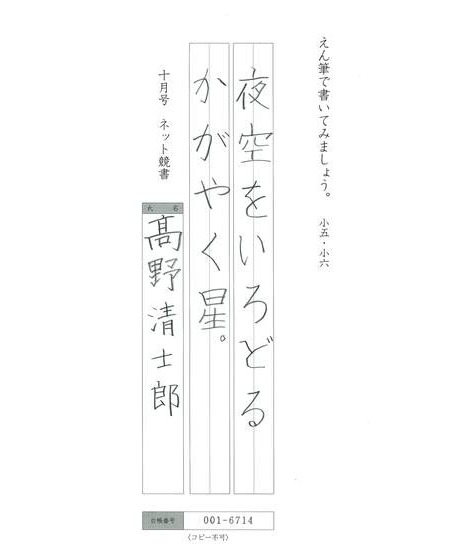 えん筆で書いてみましょう。 小五・小六
夜空をいろどる
かがやく星。
十月号 ネット競書
氏 名
髙野清士郎
台帳番号 001-6714
〈コピー不可〉